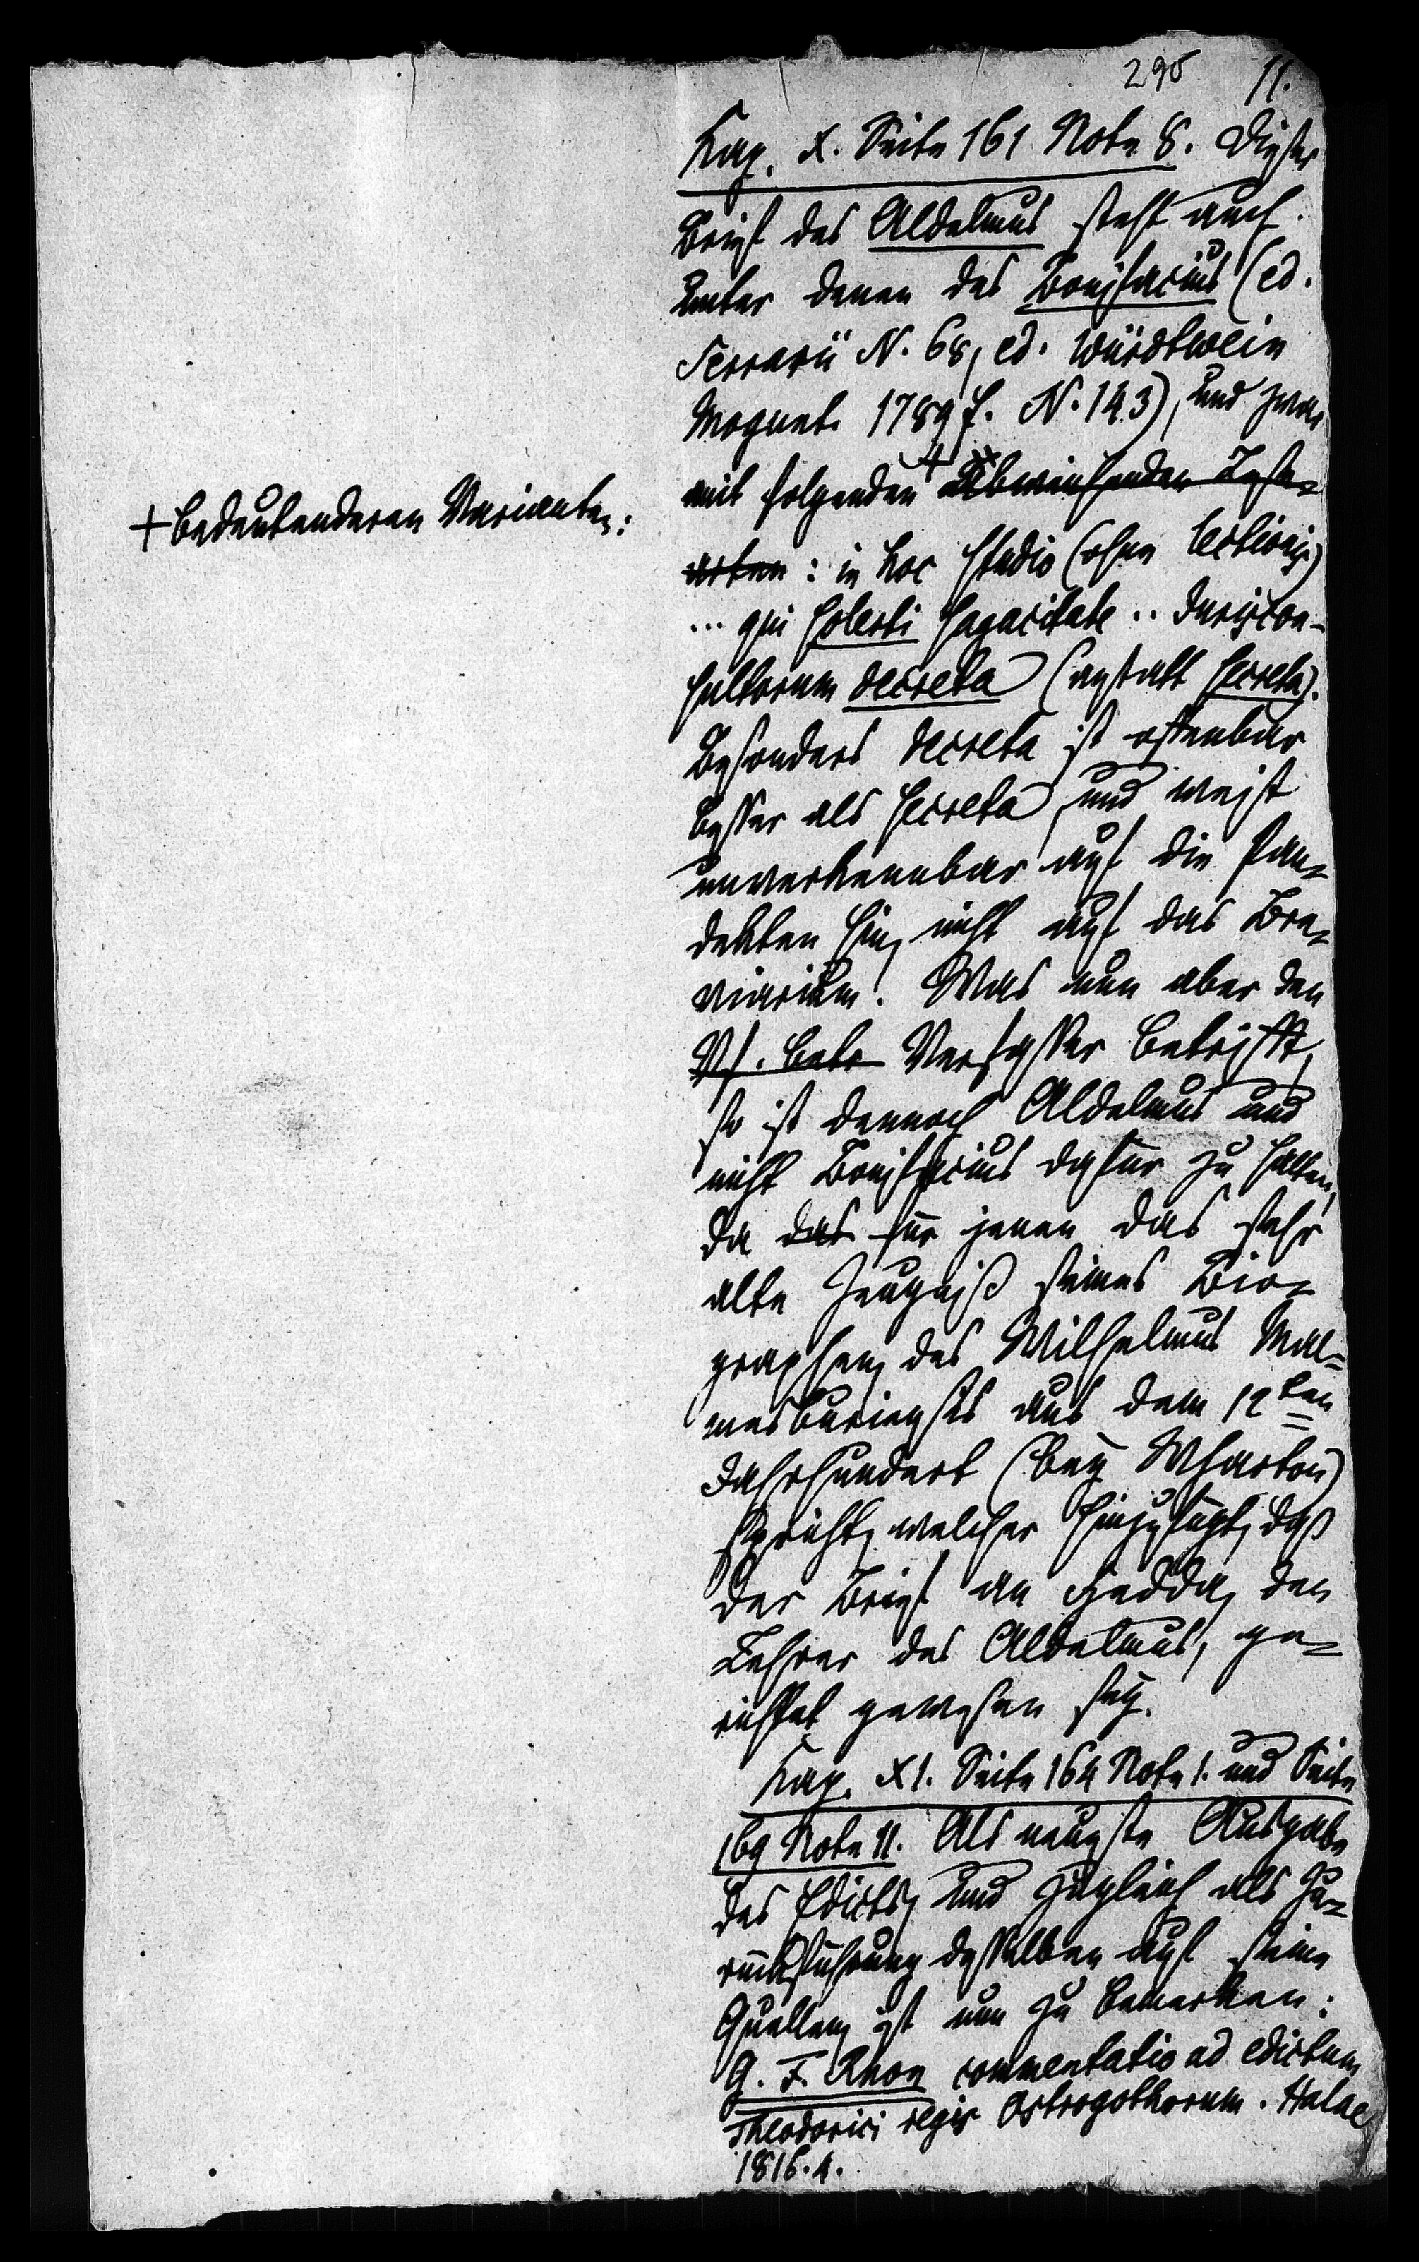 295 11.
Kap. X. Seite 161 Note 8. Dieser
Brief des Aldelmus steht auch
unter denen des Bonifacius (ed.
Serrarii N. 68, ed. Würdtwein
Mogunt. 1789 f. N. 143), und zwar
mit folgenden + Abweichenden Lese-
+ bedeutenderen Varianten:
arten : in hoc studio (ohne lectionis)
... qui solerti sagacitate .. Juriscon-
sultorum decreta (anstatt secreta).
Besonders decreta ist offenbar
besser als secreta, und weist
unverkennbar auf die Pan-
dekten hin, nicht auf das Bre-
viarium. Was nun aber den
Vf. betr Verfasser betrifft,
so ist dennoch Aldelmus und
nicht Bonifacius dafür zu halten,
da das für jenen das sehr
alte Zeugniß seines Bio-
graphen, des Wilhelmus Mal-
mesburiensis aus dem 12ten
Jahrhundert (bey Wharton)
spricht, welcher hinzufügt, daß
der Brief an Hedda, den
Lehrer des Aldelmus, ge-
richtet gewesen sey.
Kap. XI. Seite 164 Note 1. und Seite
169 Note 11. Als neueste Ausgabe
des Edicts, und zugleich als Zu-
rückführung desselben auf seine
Quellen, ist nun zu bemerken:
G. F. Rhon commentatio ad edictum
Theodorici regis Ostrogothorum. Halae
1816. 4.